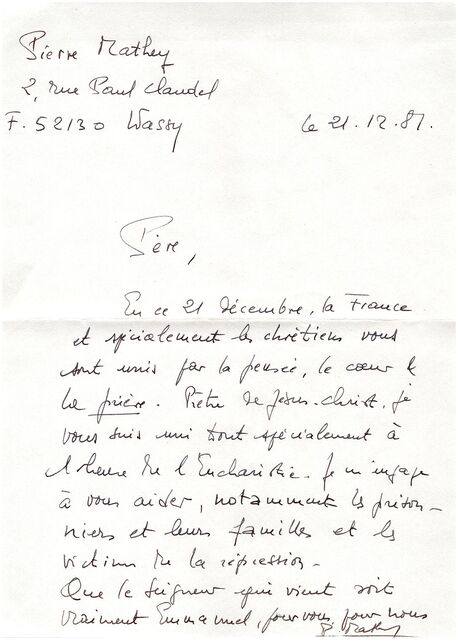 Pierre Mathey
2, rue Paul Claudel
F. 52130 Wassy
le 21.12.81.
Père,
En ce 21 décembre, la France
et spécialement les chrétiens vous
sont unis par la pensée, le cœur &
la prière. Prêtre de Jésus-Christ, je
vous suis uni tout spécialement à
l'heure de l'Eucharistie. Je m'engage
à vous aider, notamment les prison-
niers et leurs familles et les
victimes de la répression.
Que le Seigneur qui vient soit
vraiment Emmanuel, pour vous, pour nous
P. Mathey